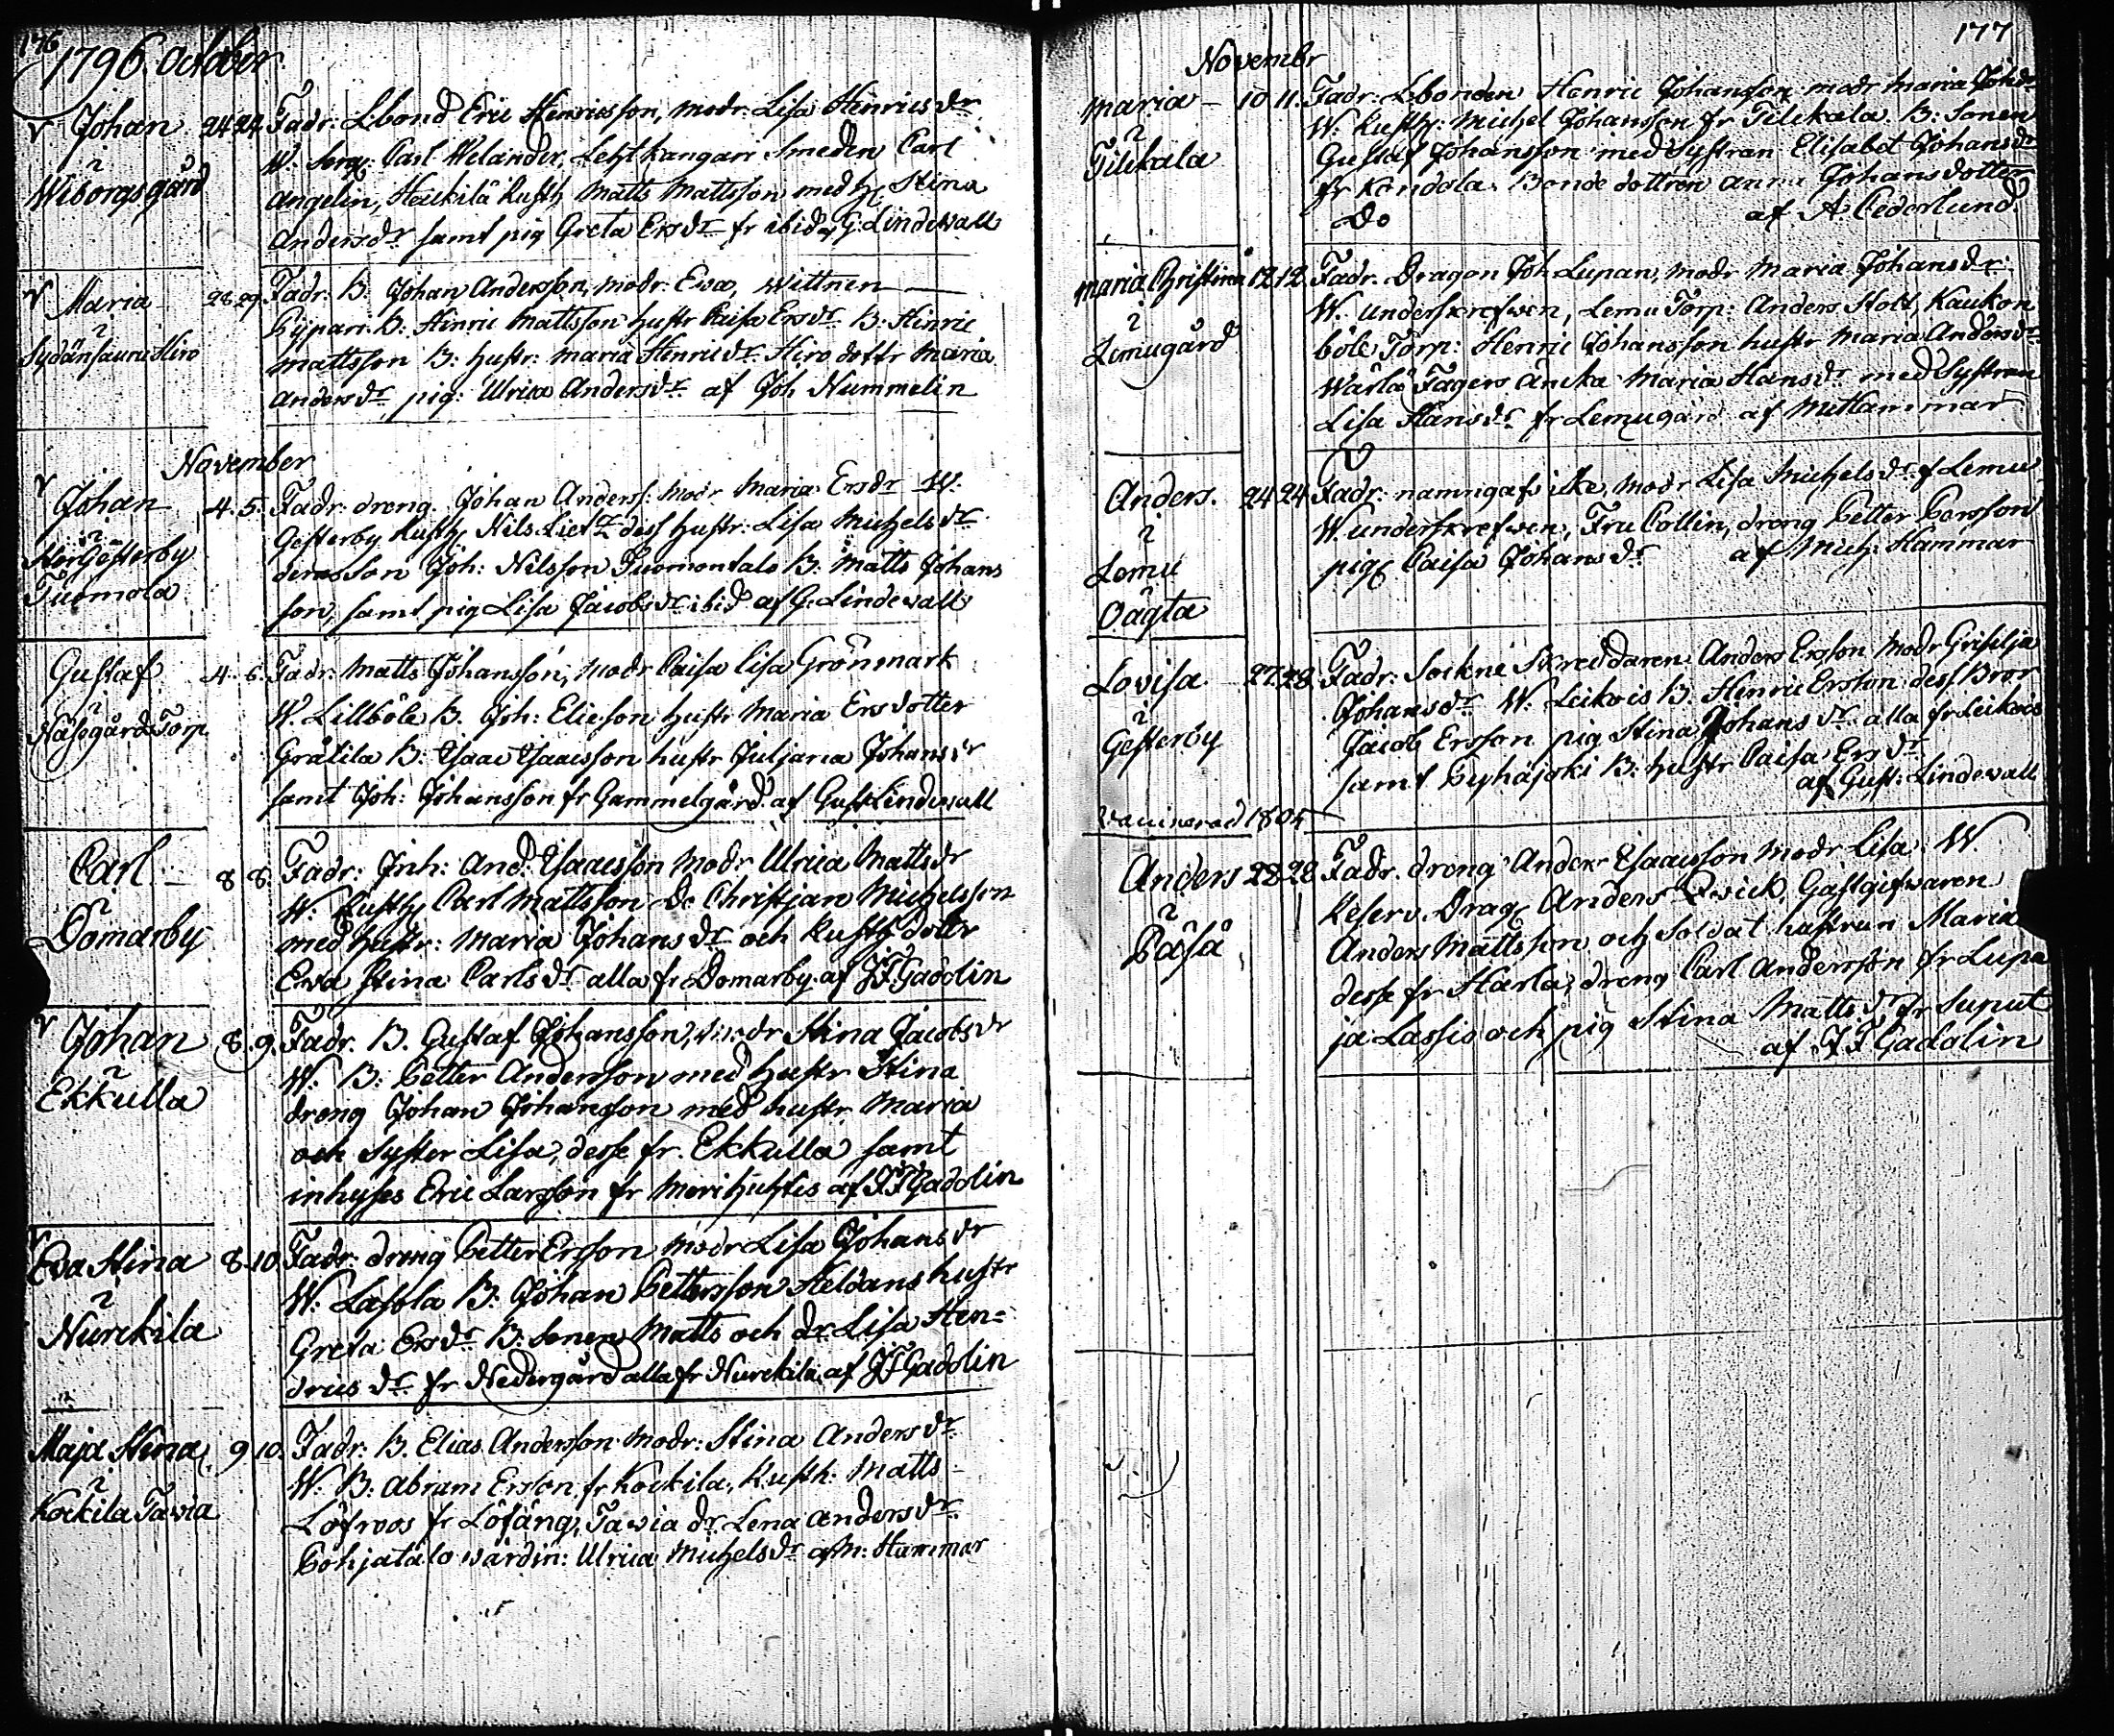 176
1796. October
Johan 24 24. Fadr. Lbond Eric Henricsson, modr. Lisa Henricsdr
i W. Serg: Carl Welander, Letzt kangari Smeden Carl
Wiborgsgård Angelin, Heikilä Rusth Matts Mattsson med h. Stina
Andersdr samt pig Greta Ersdr fr ibid af G. Lindewall
Maria 28 29. Fadr. B. Johan Andersson, modr. Ewa, Wittnen
i B: Hinric Mattsson hustr Caisa Ersdr B. Hinric
Sydänsauru Hiro Mattsson B: hustr: Maria Henricdr Hiro dottr Maria
Andersdr, pig: Ulrica Andersdr af Joh Nummelin
November
Johan 4. 5. Fadr. dreng Johan Anderss: Modr Maria Ersdr W.
i Gesterby Rusth Nils Lietz dess hustr: Lisa Michelsdr
StorGesterby deras Son Joh: Nilsson Tuomontalo B: Matts Johans
Tuomola son, samt pig Lisa Jacobsdr ibid af G: Lindewall
Gustaf 4. 6. Fadr. Matts Johansson, Modr Caisa Lisa Grönmark
i W. Lillböle B. Joh: Elieson hustr Maria Ersdotter
Näsegård Torp Gråtila B: Isaac Isaacsson hustr Juljana Johansdr
samt Joh: Johansson fr Gammelgård af Gust Lindewall
Carl 8 8. Fadr: Inh: And. Isaacsson Modr Ulrica Mattsdr
i W: Rusth Carl Mattsson Do Christjan Michelsson
Domarby med hustr: Maria Johansdr och Rusth dottr
Eva Stina Carlsdr alla fr Domarby af JF Gadolin
Johan 8. 9. Fadr. B. Gustaf Johansson, modr Stina Jacobsdr
i W: B: Petter Andersson med hustr Stina
Ekkulla dreng Johan Johansson med hustr Maria
och Syster Lisa, desse fr. Ekkulla samt
inhyses Eric Larsson fr Merihuhtis af JF Gadolin
Eva Stina 8. 10. Fadr: dreng Petter Ersson Modr Lisa Johansdr
i W: Lasola B: Johan Pettersson Heldans hustr
Nurckila Greta Ersdr B: Sonen Matts och dr Lisa Hen=
dricsdr fr Nedergård alla fr Nurckila af JF Gadolin
Maja Stina 9 10. Fadr: B. Elias Andersson Modr: Stina Andersdr
i W: B: Abram Ersson fr Kockila, Rusth: Matts
Kockila Tavia Löfroos fr Löfäng, Tavia dr Lena Andersdr
Pohjatalo wärdin: Ulrica Michelsdr af M: Hammar
177
Novembr
Maria 10 11. Fadr: Lbonden Henric Johansson modr Maria Johdr
i W: Rusth: Michel Johansson fr Tilckala B: Sonen
Tilckala Gustaf Johansson med Systran Elisabet Johansdr
fr Kandola. Bonde dottren Anna Johansdotter
Do af A Cederlund
Maria Christina 12 12. Fadr. Dragon Joh Lupan, modr Maria Johansdr
i W. underskrefven, Lemu Torp: Anders Holt, Kaukon
Lemugård böle Torp: Henric Johansson hustr Maria Andersdr
Wärlä Fagers äncka Maria Hansdr med Systran
Lisa Hansdr fr Lemugård af M Hammar
Anders. 24 24 Fadr: namngafs icke, modr Lisa Michelsdr f Lemu
i W underskrefven, Fru Collin, dreng Petter Persson
Lemu pig Caisa Johansdr af Mich: Hammar
Oägta
Lovisa 27 28 Fadr: Sockne Skreddaren Anders Ersson Modr Griselja
i Johansdr W: Leikois B: Henric Ersson dess Bror
Gesterby Jacob Ersson pig Stina Johansdr alla fr Leikois
samt Pyhajoki B: hustr Caisa Ersdr
af Gust: Lindewall
Vaccinerad 1805
Anders 28 28 Fadr. dreng Anders Isaacsson modr Lisa W.
i Reserv. Drag Anders Qvick, Gastgifwaren
Påså Anders Mattsson och Soldat hustrun Maria
desse fr Harla, dreng Carl Andersson fr Lupa
ja Lassis och pig Stina Mattsdr fr Suput
af JF Gadolin